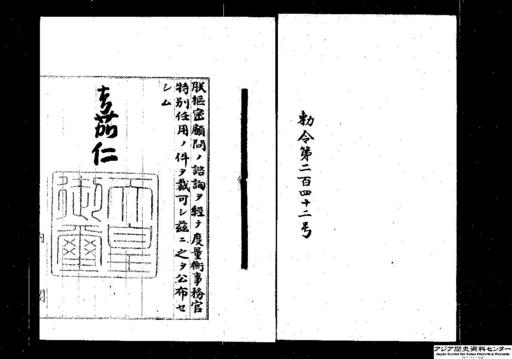 勅令第二百四十二号
朕枢密顧問ノ諮詢ヲ経テ度量衡事務官
特別任用ノ件ヲ裁可シ茲ニ之ヲ公布セ
シム
嘉仁
天皇
御璽
アジア歴史資料センター
Japan Center for Asian Historical Records